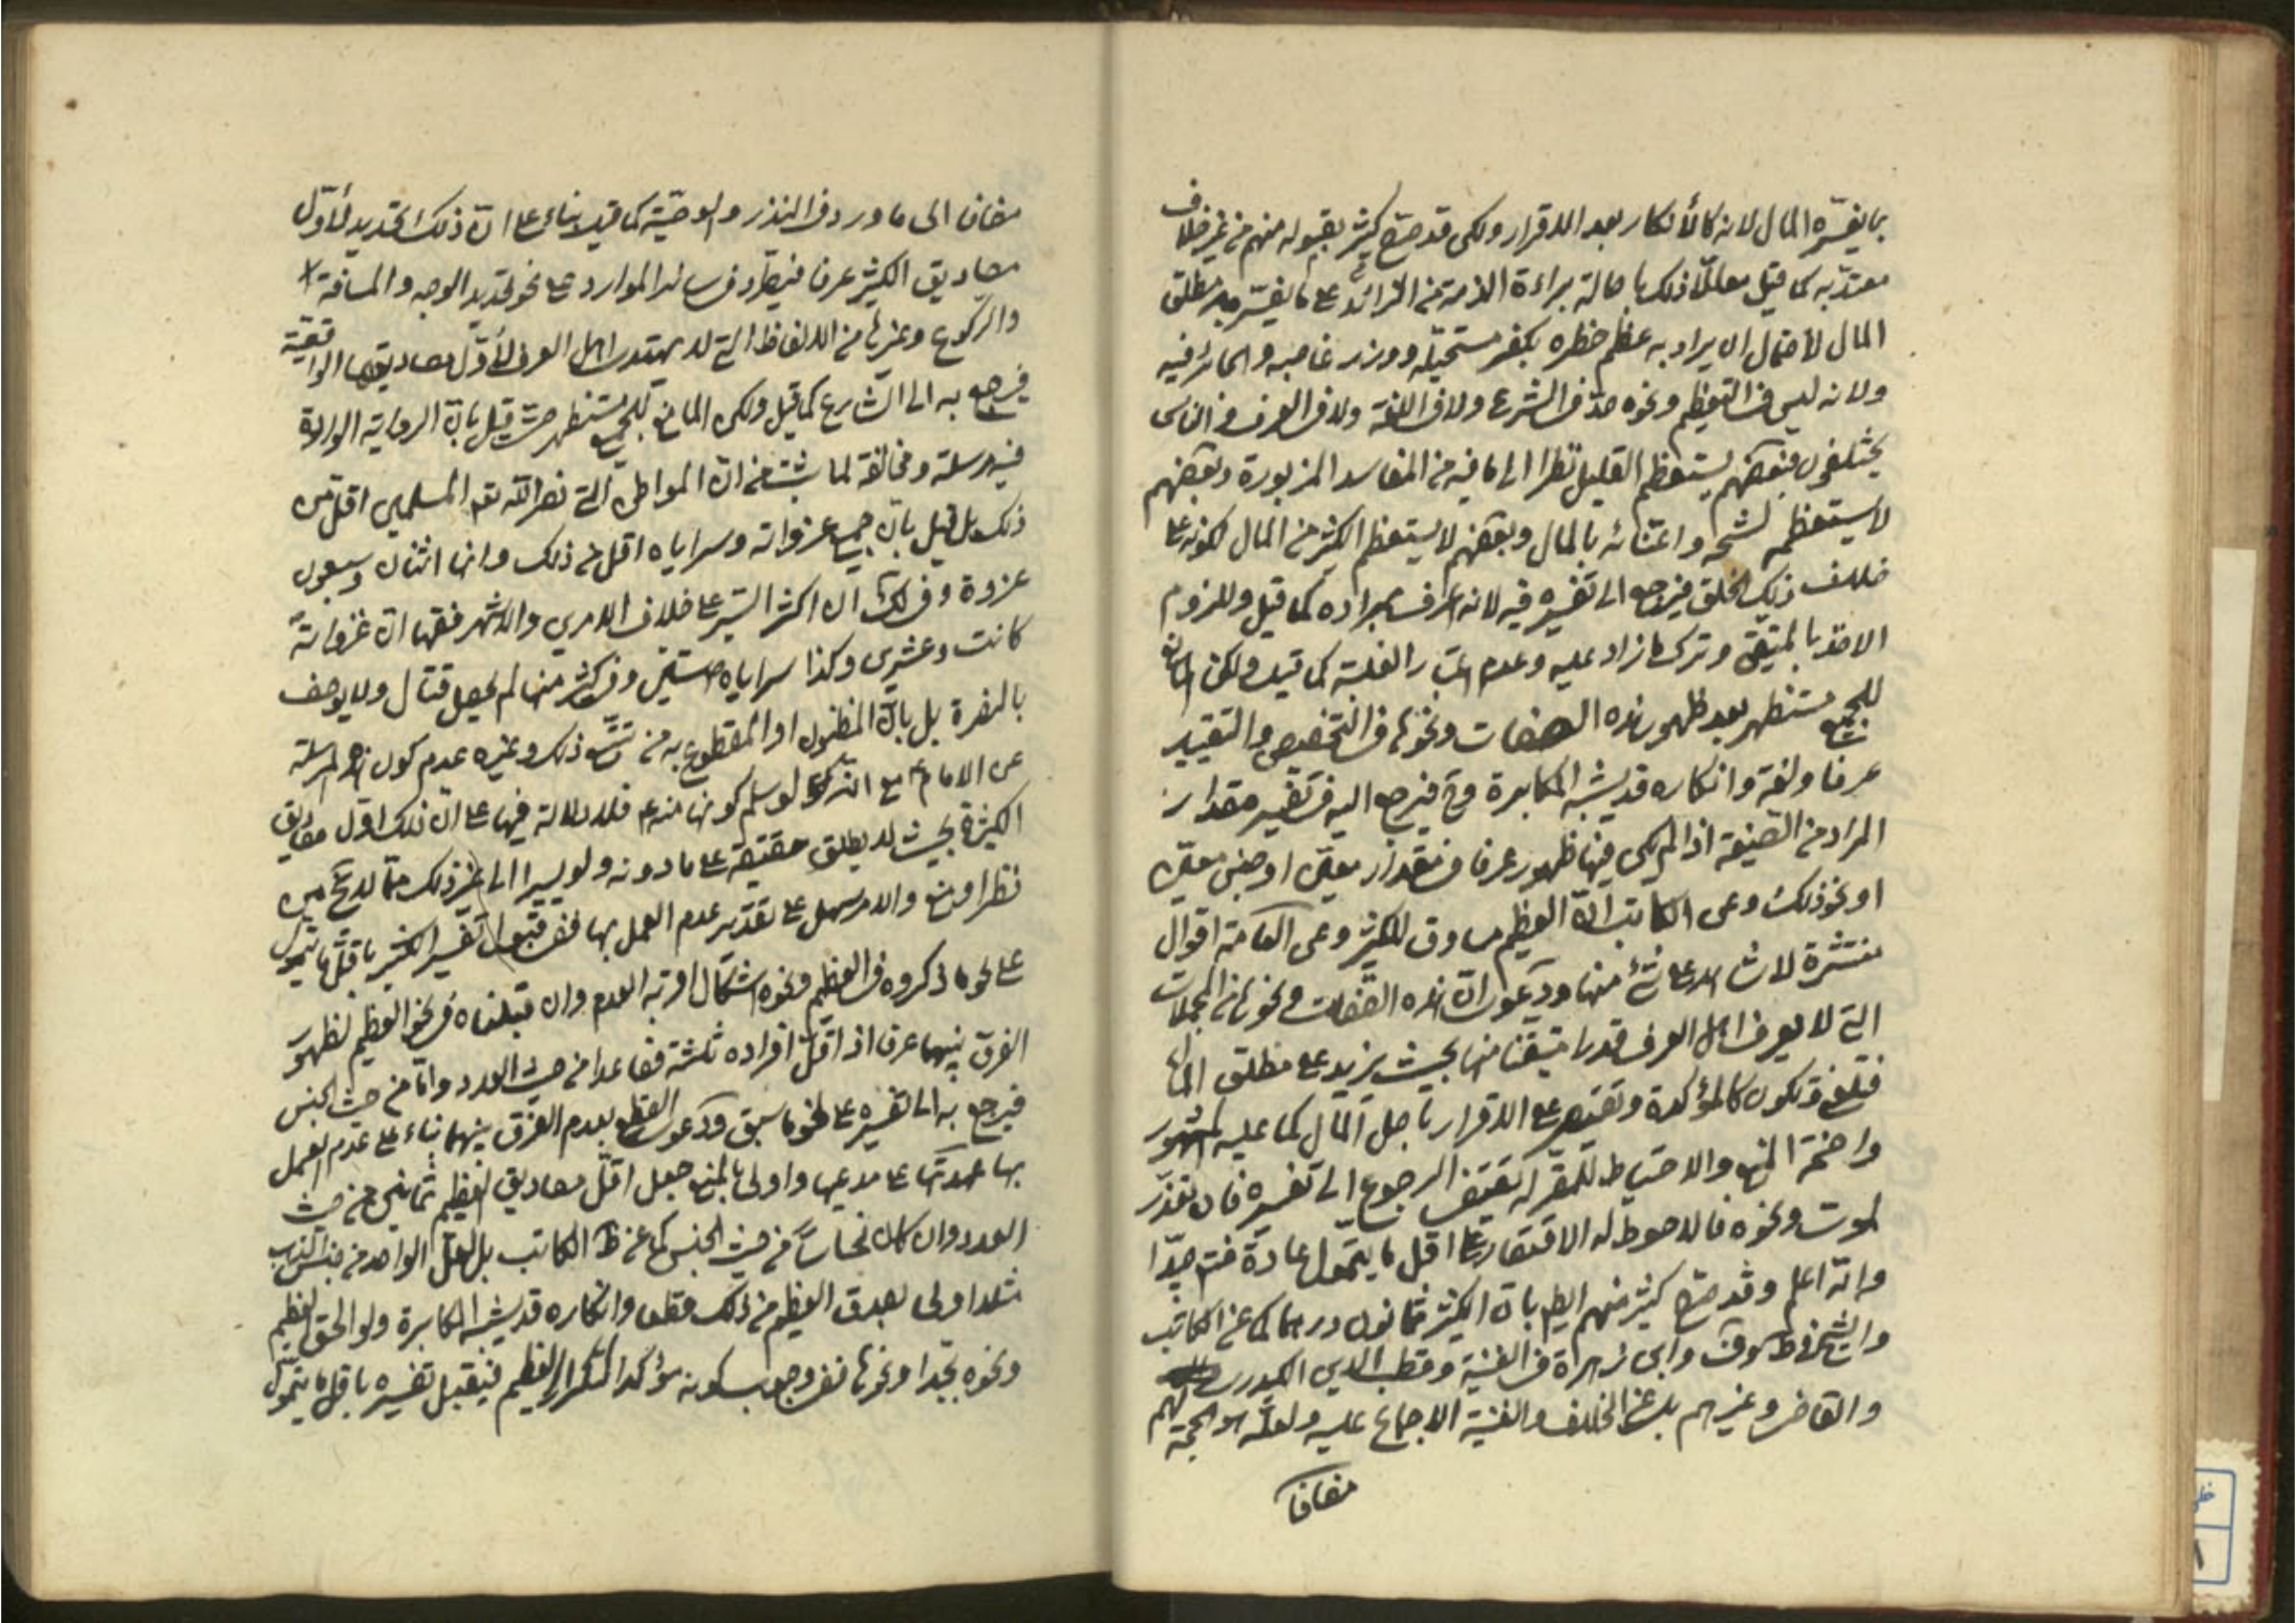 بما يفسّره المال لانه كالأنكار بعد الاقرار ولكن قد صرّح كثير بقبوله منهم من غير خلاف
معتدّ به كما قيل معلّلا ذلك باصالة براءة الذمة من الزائد على ما يفسّر به مطلق
المال لأحتمال ان يراد به عظم خطره بكفر مستحيله ووزر غاصبه والجائر فيه
ولانه ليس في التعظيم ونحوه حدّ في الشرع ولا في اللغة ولا في العرف والناس
يختلفون فبعضهم يستعظم القليل نظرا الى ما فيه من المفاسد المزبورة وبعضهم
لا يستعظمه لشحه واعتنائه بالمال وبعضهم لا يستعظم الكثير من المال لكونه على
خلاف ذلك الخلق فيرجع الى تفسيره فيه لانه اعرف بمراده كما قيل وللزوم
الاخذ بالمتيقن وترك ما زاد عليه وعدم اعتبار الغلبة كما قيل ولكن المانع
للجميع مستظهر بعد ظهور هذه الصفات ونحوها في التخصيص والتقييد
عرفا ولغة وانكاره قد يشبه المكابرة وح فيرجع اليه في تفسير مقدار
المراد من الصيغة اذا لم يكن فيها ظهور عرفا في مقدار معيّن او جنس معيّن
او نحو ذلك وعن الكاتب انّ العظيم مساوق للكثير وعن العامة اقوال
منتشرة لا شاهد على شئ منها ودعوى انّ هذه الصفات ونحوها من المجملات
التي لا يعرف اهل العرف قدرا متيقنا منها بحيث يزيد على مطلق المال
فتلغى وتكون كالمؤكدة وتقتصر على الاقرار باصل المال كما عليه المشهور
واضحة المنع والاحتياط للمقر له يقتضى الرجوع الى تفسيره فان تعذر
لموت ونحوه فالاحوط له الاقتصار على اقل ما يتموّل عادة فتم جدّا
والله اعلم وقد صرّح كثير منهم ايضا بانّ الكثير ثمانون درهما كما عن الكاتب
والشيخ في ط وف وابن زهراة في الغنية وقطب الدين الكيدري
والقاضي وغيرهم بل عن الخلاف والغنية الاجماع عليه ولعلّه هو الحجة لهم
مضافا
مضافا الى ما ورد في النذر والوصيّة كما قيل بناء على انّ ذلك تحديد لأوّل
مصاديق الكثير عرفا فيطّرد في سائر الموارد على نحو تحديد الوجه والمسافة
والركوع وغيرها من الالفاظ التي لا يهتدى اهل العرف لأوّل مصاديقها الواقعيّة
فيرجع به الى الشارع كما قيل ولكن المانع للجميع مستظهر حيث قيل بانّ الرواية الواردة
فيه مرسلة ومخالفة لما ثبت من انّ المواطن التي نصر الله تع المسلمين اقل من
ذلك بل قيل بانّ جميع غزواته وسراياه اقل من ذلك وانها اثنان وسبعون
غزوة وفي لك ان اكثر السير على خلاف الامرين والاشهر فقها انّ غزواته
كانت وعشرين وكذا سراياه ستين وفي كثير منها لم يحصل قتال ولا يوصف
بالنصرة بل بانّ المظنون او المقطوع به من تتبّع ذلك وغيره عدم كون هذه المرسلة
عن الامام ع مع انّه لو سلم كونها منه فلا دلالة فيها على انّ ذلك اوّل مصاديق
الكثرة بحيث لا يطلق حقيقة على ما دونه ولو يسيرا الى غير ذلك ممّا لا يخ من
نظر او منع والامر سهل على تقدير عدم العمل بها ففي قبول تفسير الكثير باقلّ ما يتموّل
على نحو ما ذكروه في العظيم ونحوه اشكال اقربه العدم وان قبلناه في نحو العظيم لظهور
الفرق بينهما عرفا اذ اقلّ افراده ثلثة فصاعدا من حيث العدد وامّا من حيث الجنس
فيرجع به الى تفسيره على نحو ما سبق ودعوى القطع بعدم الفرق بينهما بناء على عدم العمل
بها عهدتها على مدعيها واولى بالمنع جعل اقلّ مصاديق العظيم ثمانين من حيث
العدد وان كان نحاسا من حيث الجنس كما عن ظ الكاتب بل لعلّ الواحد من جنس الذهب
مثلا اولى بصدق العظيم من ذلك قطعا وانكاره قد يشبه المكابرة ولو الحق العظيم
ونحوه بجدا ونحوها ففي وجوب كونه مؤكدا لتكرار العظيم فيقبل تفسيره باقل ما يتموّل